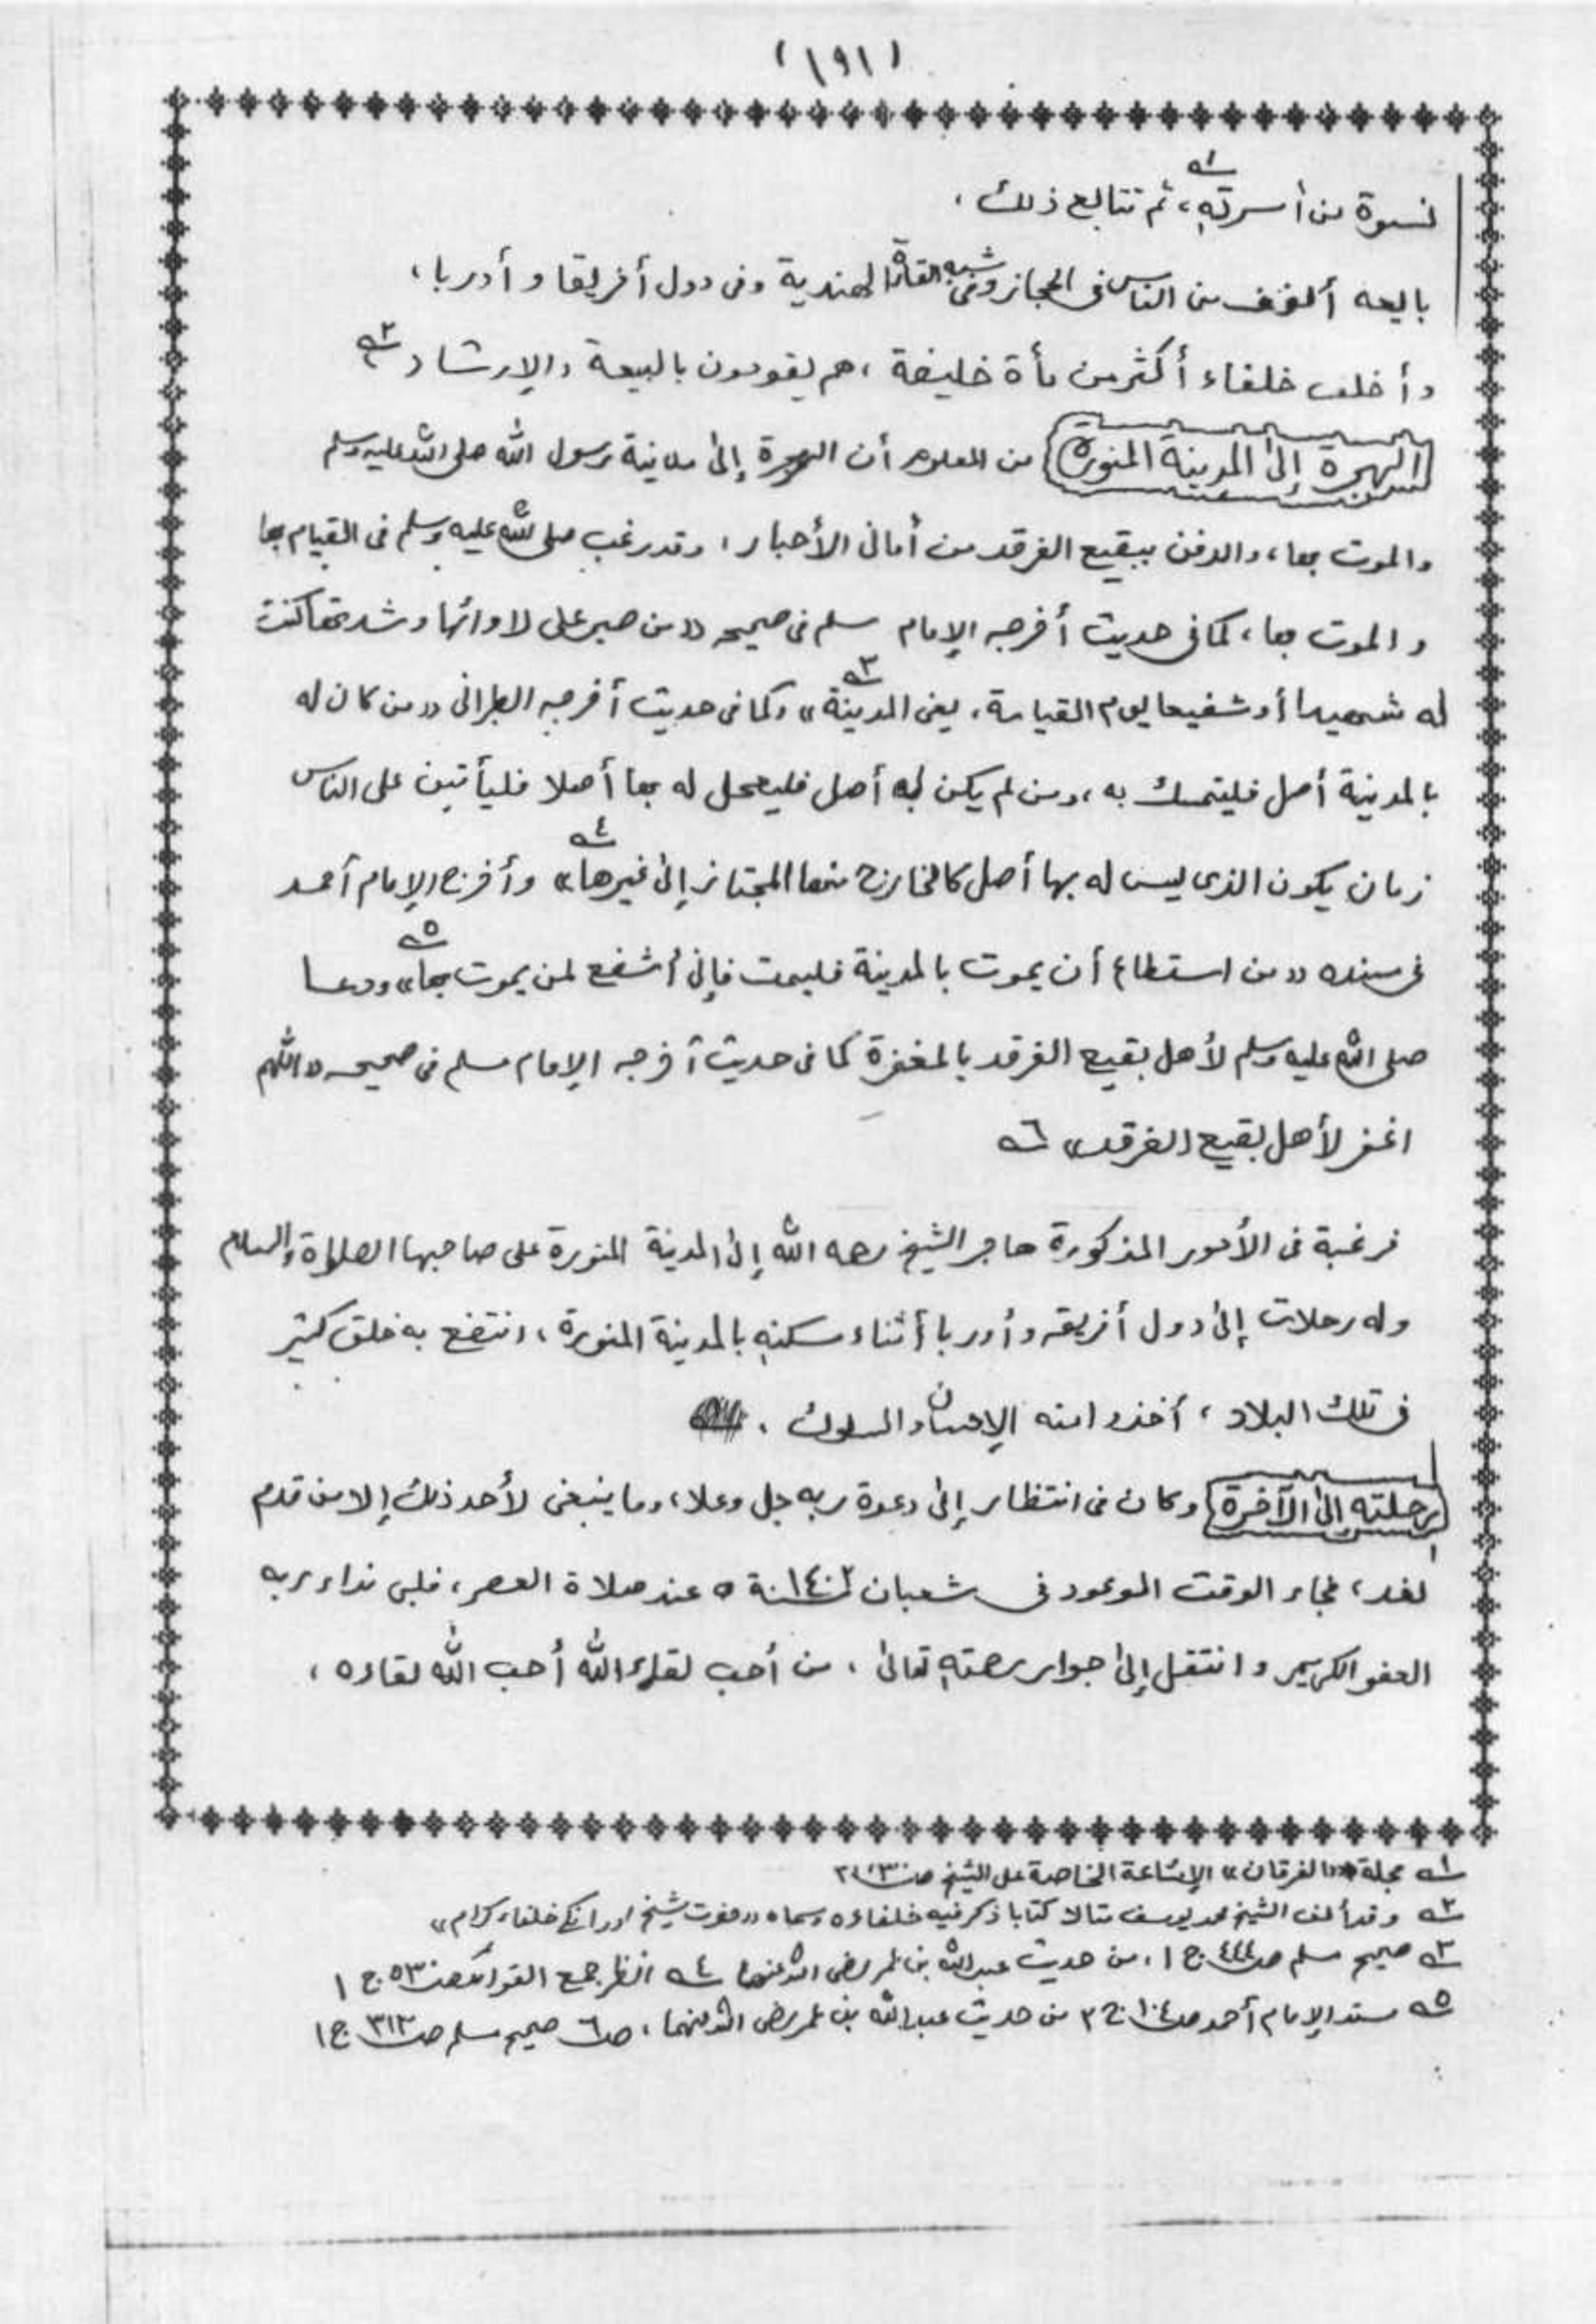 (١٩١)
نسوة من أسرته،١ ثم تتابع ذلك،
بايعه ألوف من الناس في الحجاز وفي شبه القارة الهندية وفي دول أفريقا و أوربا،
وأخلف خلفاء أكثر من مأة خليفة، هم يقومون بالبيعة والإرشاد ٢
الهجرة إلى المدينة المنورة من المعلوم أن الهجرة إلى مدينة رسول الله صلى الله عليه وسلم
والموت بها، والدفن ببقيع الغرقد من أماني الأحبار، وقد رغب صلى الله عليه وسلم في القيام بها
و الموت بها، كما في حديث أخرجه الإمام مسلم في صحيحه «من صبر على لاوائها وشدتها كنت
له شهيدا أو شفيعا يوم القيامة، يعني المدينة»٣ وكما في حديث أخرجه الطبراني «من كان له
بالمدينة أصل فليتمسك به، ومن لم يكن له أصل فليجعل له بها أصلا فليأتين على الناس
زمان يكون الذى ليس له بها أصل كالخارج منها المجتاز إلى غيرها»٤ وأخرج الإمام أحمد
في مسنده «من استطاع أن يموت بالمدينة فليمت فإني أشفع لمن يموت بها»٥ ودعا
صلى الله عليه وسلم لأهل بقيع الغرقد بالمغفرة كما في حديث أخرجه الإمام مسلم في صحيحه «اللهم
اغفر لأهل بقيع الغرقد» ٦
فرغبة في الأمور المذكورة هاجر الشيخ رحمه الله إلى المدينة المنورة على صاحبها الصلاة والسلام
وله رحلات إلى دول أفريقه وأوربا أثناء سكنه بالمدينة المنورة، انتفع به خلق كثير
في تلك البلاد، أخذوا منه الإحسان والسلوك.
رحلته إلى الآخرة وكان في انتظار إلى دعوة ربه جل وعلا، وما ينبغي لأحد ذلك إلا من قدم
لغد، فجاء الوقت الموعود في شعبان ١٤٠٢ه عند صلاة العصر، فلبى نداء ربه
العفو الكريم و انتقل إلى جوار رحمته تعالى، من أحب لقاء الله أحب الله لقاءه،
١ مجلة «الفرقان» الإشاعة الخاصة على الشيخ ص
٢ وقد ألف الشيخ محمد يوسف متالا كتابا ذكر فيه خلفاءه وسماه «حضرت شيخ اور انكے خلفاء كرام»
٣ صحيح مسلم ص٤٤٤ ج ١، من حديث عبد الله بن عمر رضى الله عنهما ٤ انظر جمع الفوائد ص٥٣ ج ١
٥ مسند الإمام أحمد ص١٠٤ ج ٢ من حديث عبد الله بن عمر رضى الله عنهما، ٦ صحيح مسلم ص٣١٣ ج ١